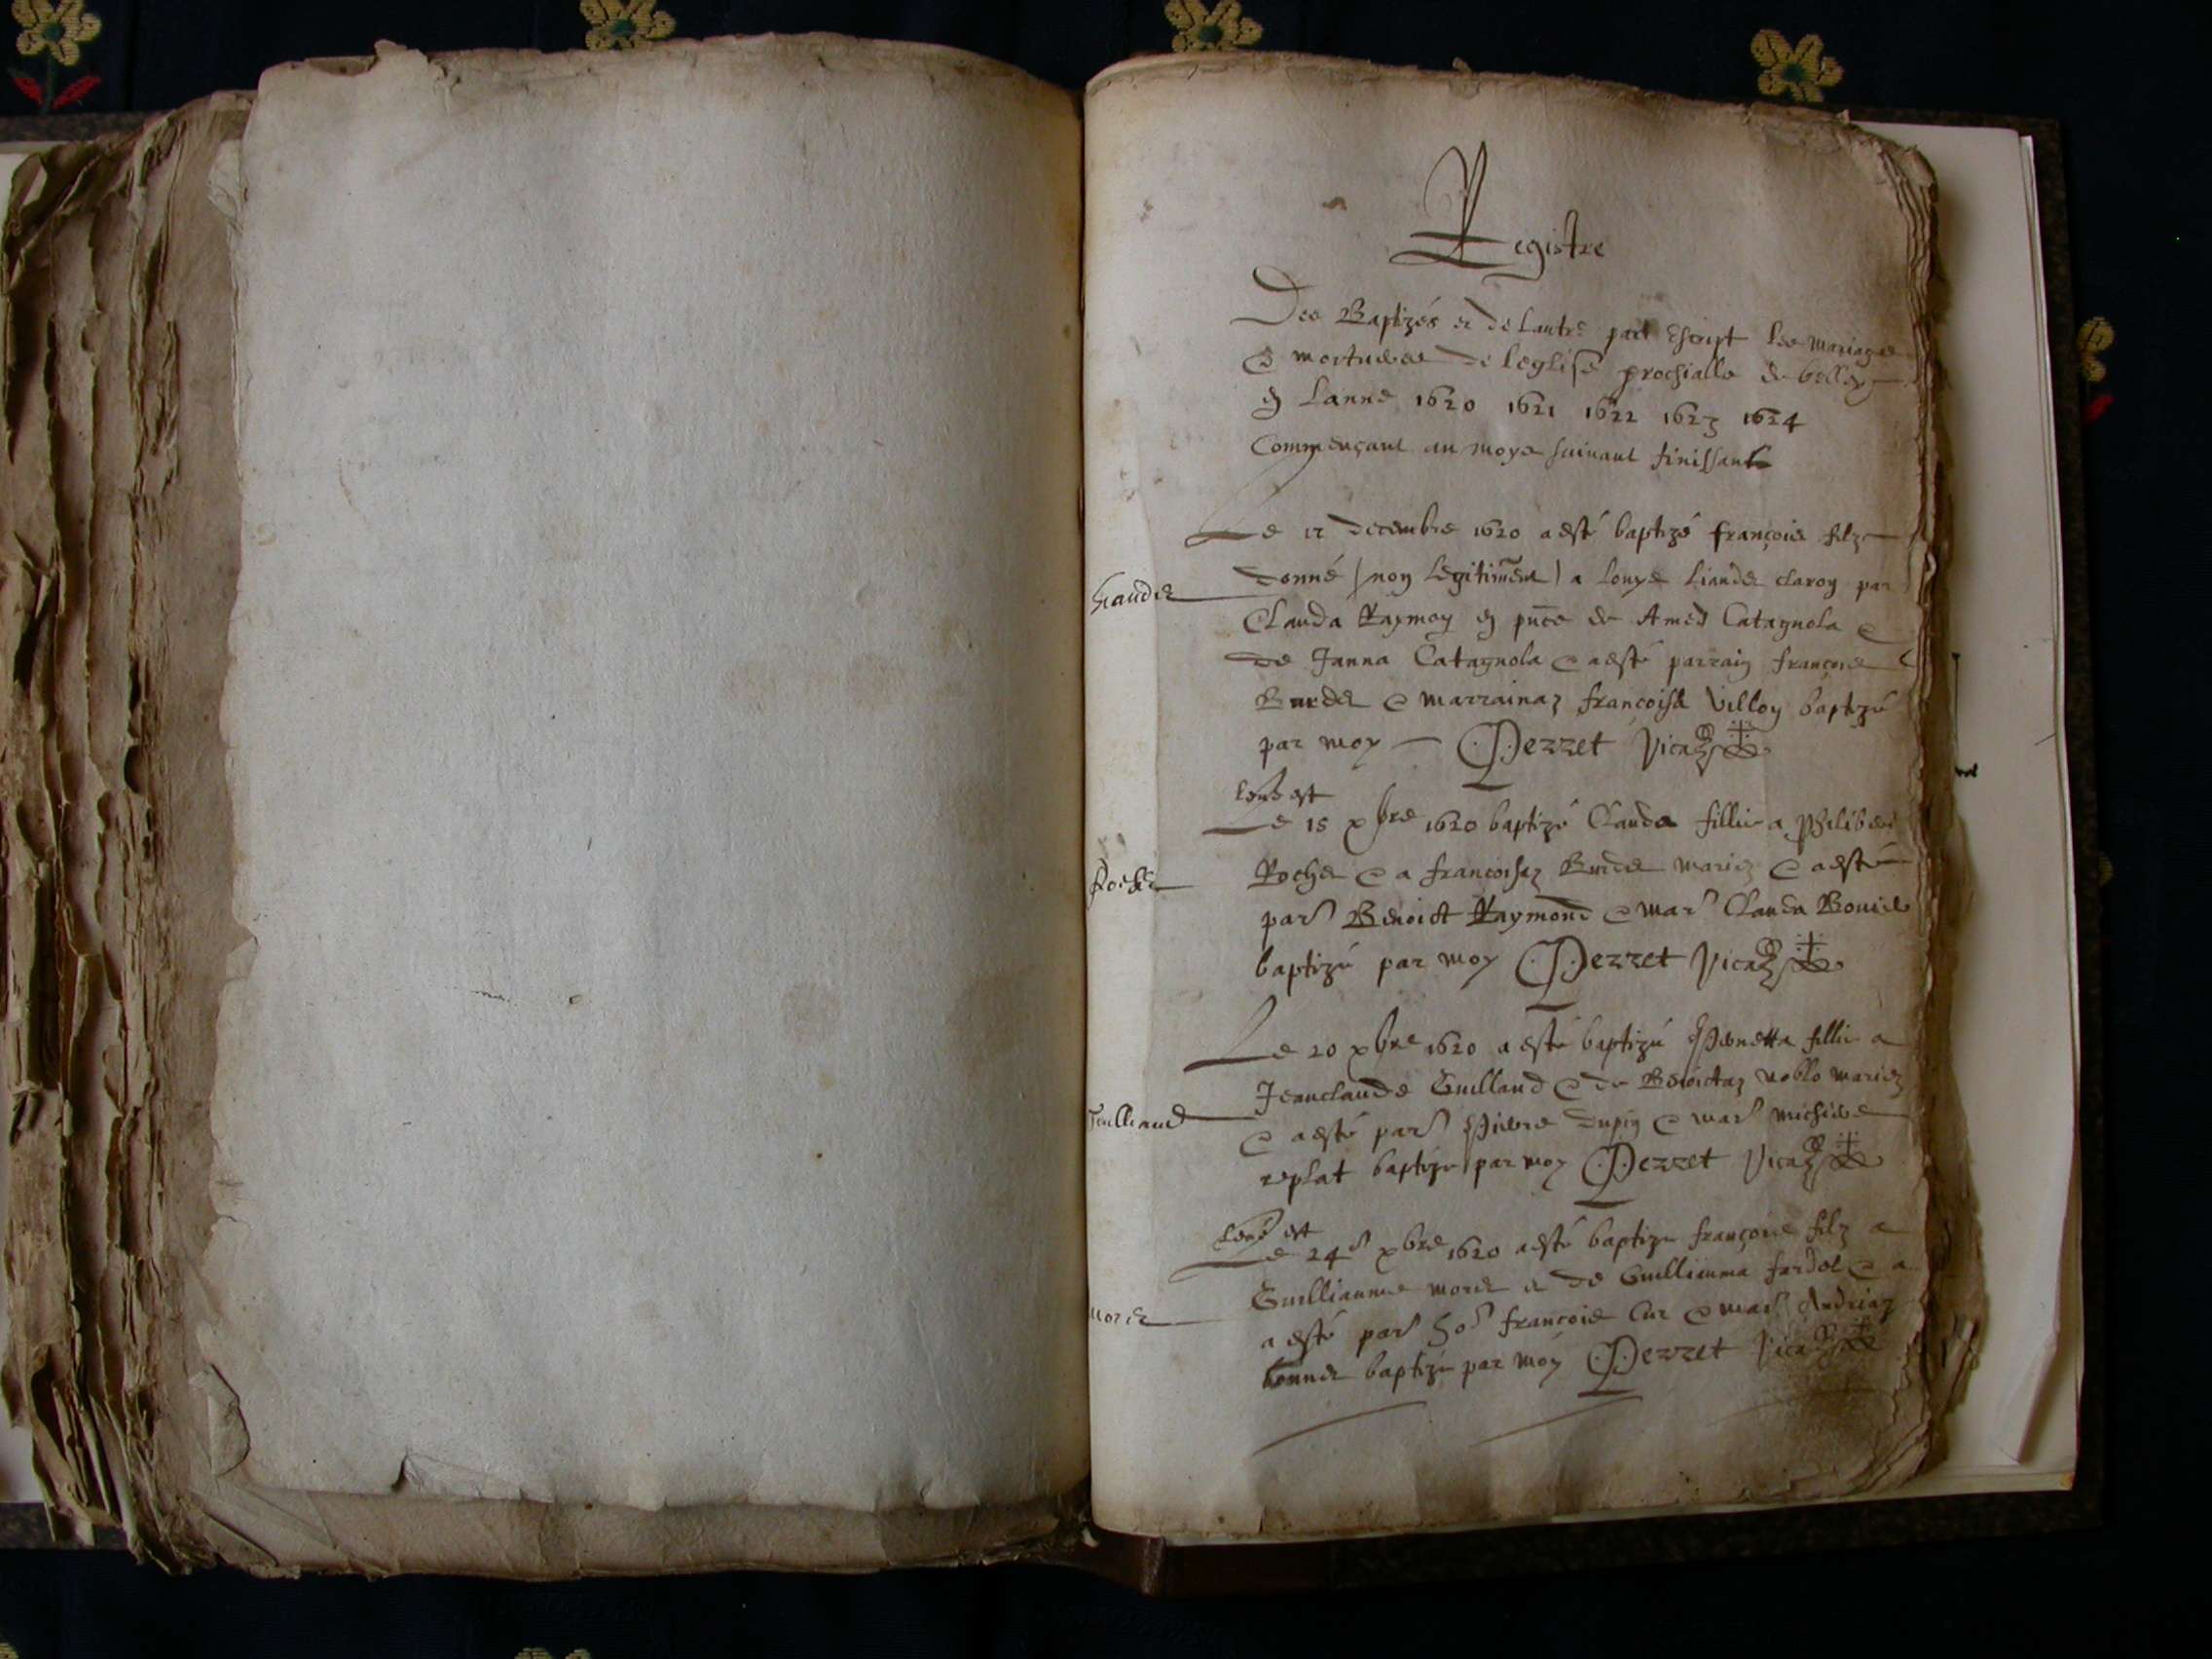 Registre
Des Baptizés et de lautre part Escript les mariages
et mortueres de leglise prochialle de belley
en Lanne 1620 1621 1622 1623 1624
Commençant au moys suivant finissant
Le 12 decembre 1620 a esté baptizé françois filz
donné (non legitimemt) a louys Liandz claroy par
Liandz
Clauda Raymon en pñce de Amed Catagnola et
de Janna Catagnola et a esté parrain françois
Burdet et marrainaz françoise Villon baptizé
par moy Pezzet Vicaire
Le 15 xbre 1620 baptizé Clauda fillie a Philibert
Roche
Roche et a francoisaz Burdet mariez et a esté
par Benoict Raymond et mar Clauda Bovier
baptizé par moy Pezzet Vicaire
Le 20 xbre 1620 a esté baptizé Pernetta fillie a
Jeanclaude Guilland et de Benoictaz noblo mariez
Guilland
et a esté par Pierre dupin et mar michiere
replat baptizé par moy Pezzet Vicaire
Le 24 xbre 1620 a esté baptizé françois filz a
Guilliaume moret et de Guillauma fardel et a
moret
a esté par hoe françois Cur et mar Andriaz
bonnet baptizé par moy Pezzet Vicaire